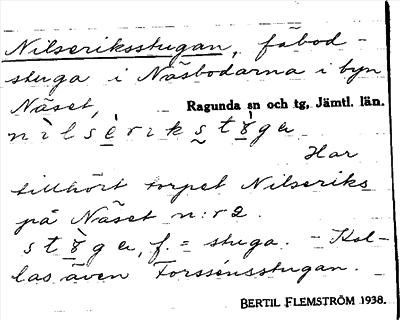 Nilseriksstugan, fäbod-
stuga i Näsbodarna i byn
Näset, Ragunda sn och tg, Jämtl. län.
nìlsèrikstòga
Har
tillhört torpet Nilseriks
på Näset n:r 2.
stòga, f. = stuga. - Kal-
las även Forssénsstugan.
BERTIL FLEMSTRÖM 1938.